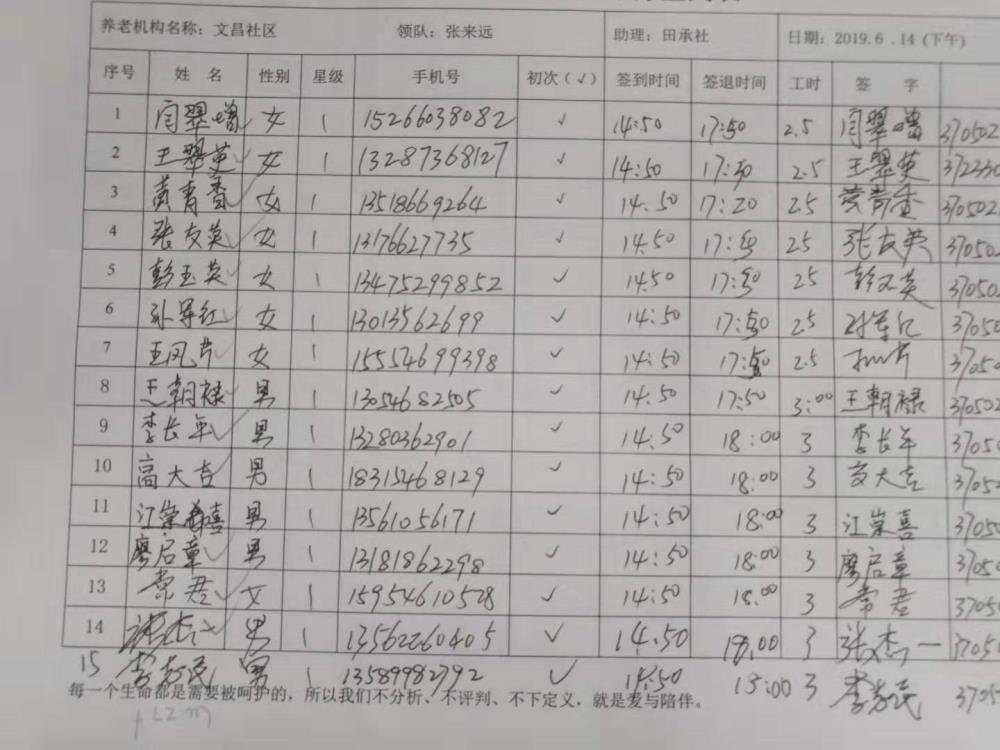 养老机构名称：文昌社区 领队：张来远 助理：田承社 日期：2019.6.14（下午）
序号 姓名 性别 星级 手机号 初次（√） 签到时间 签退时间 工时 签字
1 闫翠增 女 1 15266038082 √ 14:50 17:50 2.5 闫翠增 370502
2 王翠英 女 1 13287368127 √ 14:50 17:30 2.5 王翠英 372330
3 黄青香 女 1 13518669264 √ 14:50 17:20 25 黄青香 370502
4 张友英 女 1 13176627735 √ 14:50 17:50 25 张友英 370502
5 彭玉英 女 1 13475299852 √ 14:50 17:50 25 370502
6 孙军红 女 1 13013562699 √ 14:50 17:50 25 37050
7 王凤芹 女 1 15554699398 √ 14:50 17:50 2.5 37050
8 王朝禄 男 1 13054682505 √ 14:50 17:50 3:00 王朝禄 370502
9 李长年 男 1 13280362901 √ 14:50 18:00 3 李长年 37050
10 高大吉 男 1 18315468129 √ 14:50 18:00 3 高大吉 37052
11 江崇喜 男 1 13561056171 √ 14:50 18:00 3 江崇喜 37050
12 廖启章 男 1 13181862298 √ 14:50 18:00 3 廖启章 37050
13 常君 女 1 15954610528 √ 14:50 18:00 3 常君 3705
14 张杰一 男 1 13562260405 √ 14:50 18:00 3 张杰一 37050
15 李芳民 男 1 13589982792 √ 14:50 18:00 3 李芳民 3705
每一个生命都是需要被呵护的，所以我们不分析、不评判、不下定义，就是爱与陪伴。